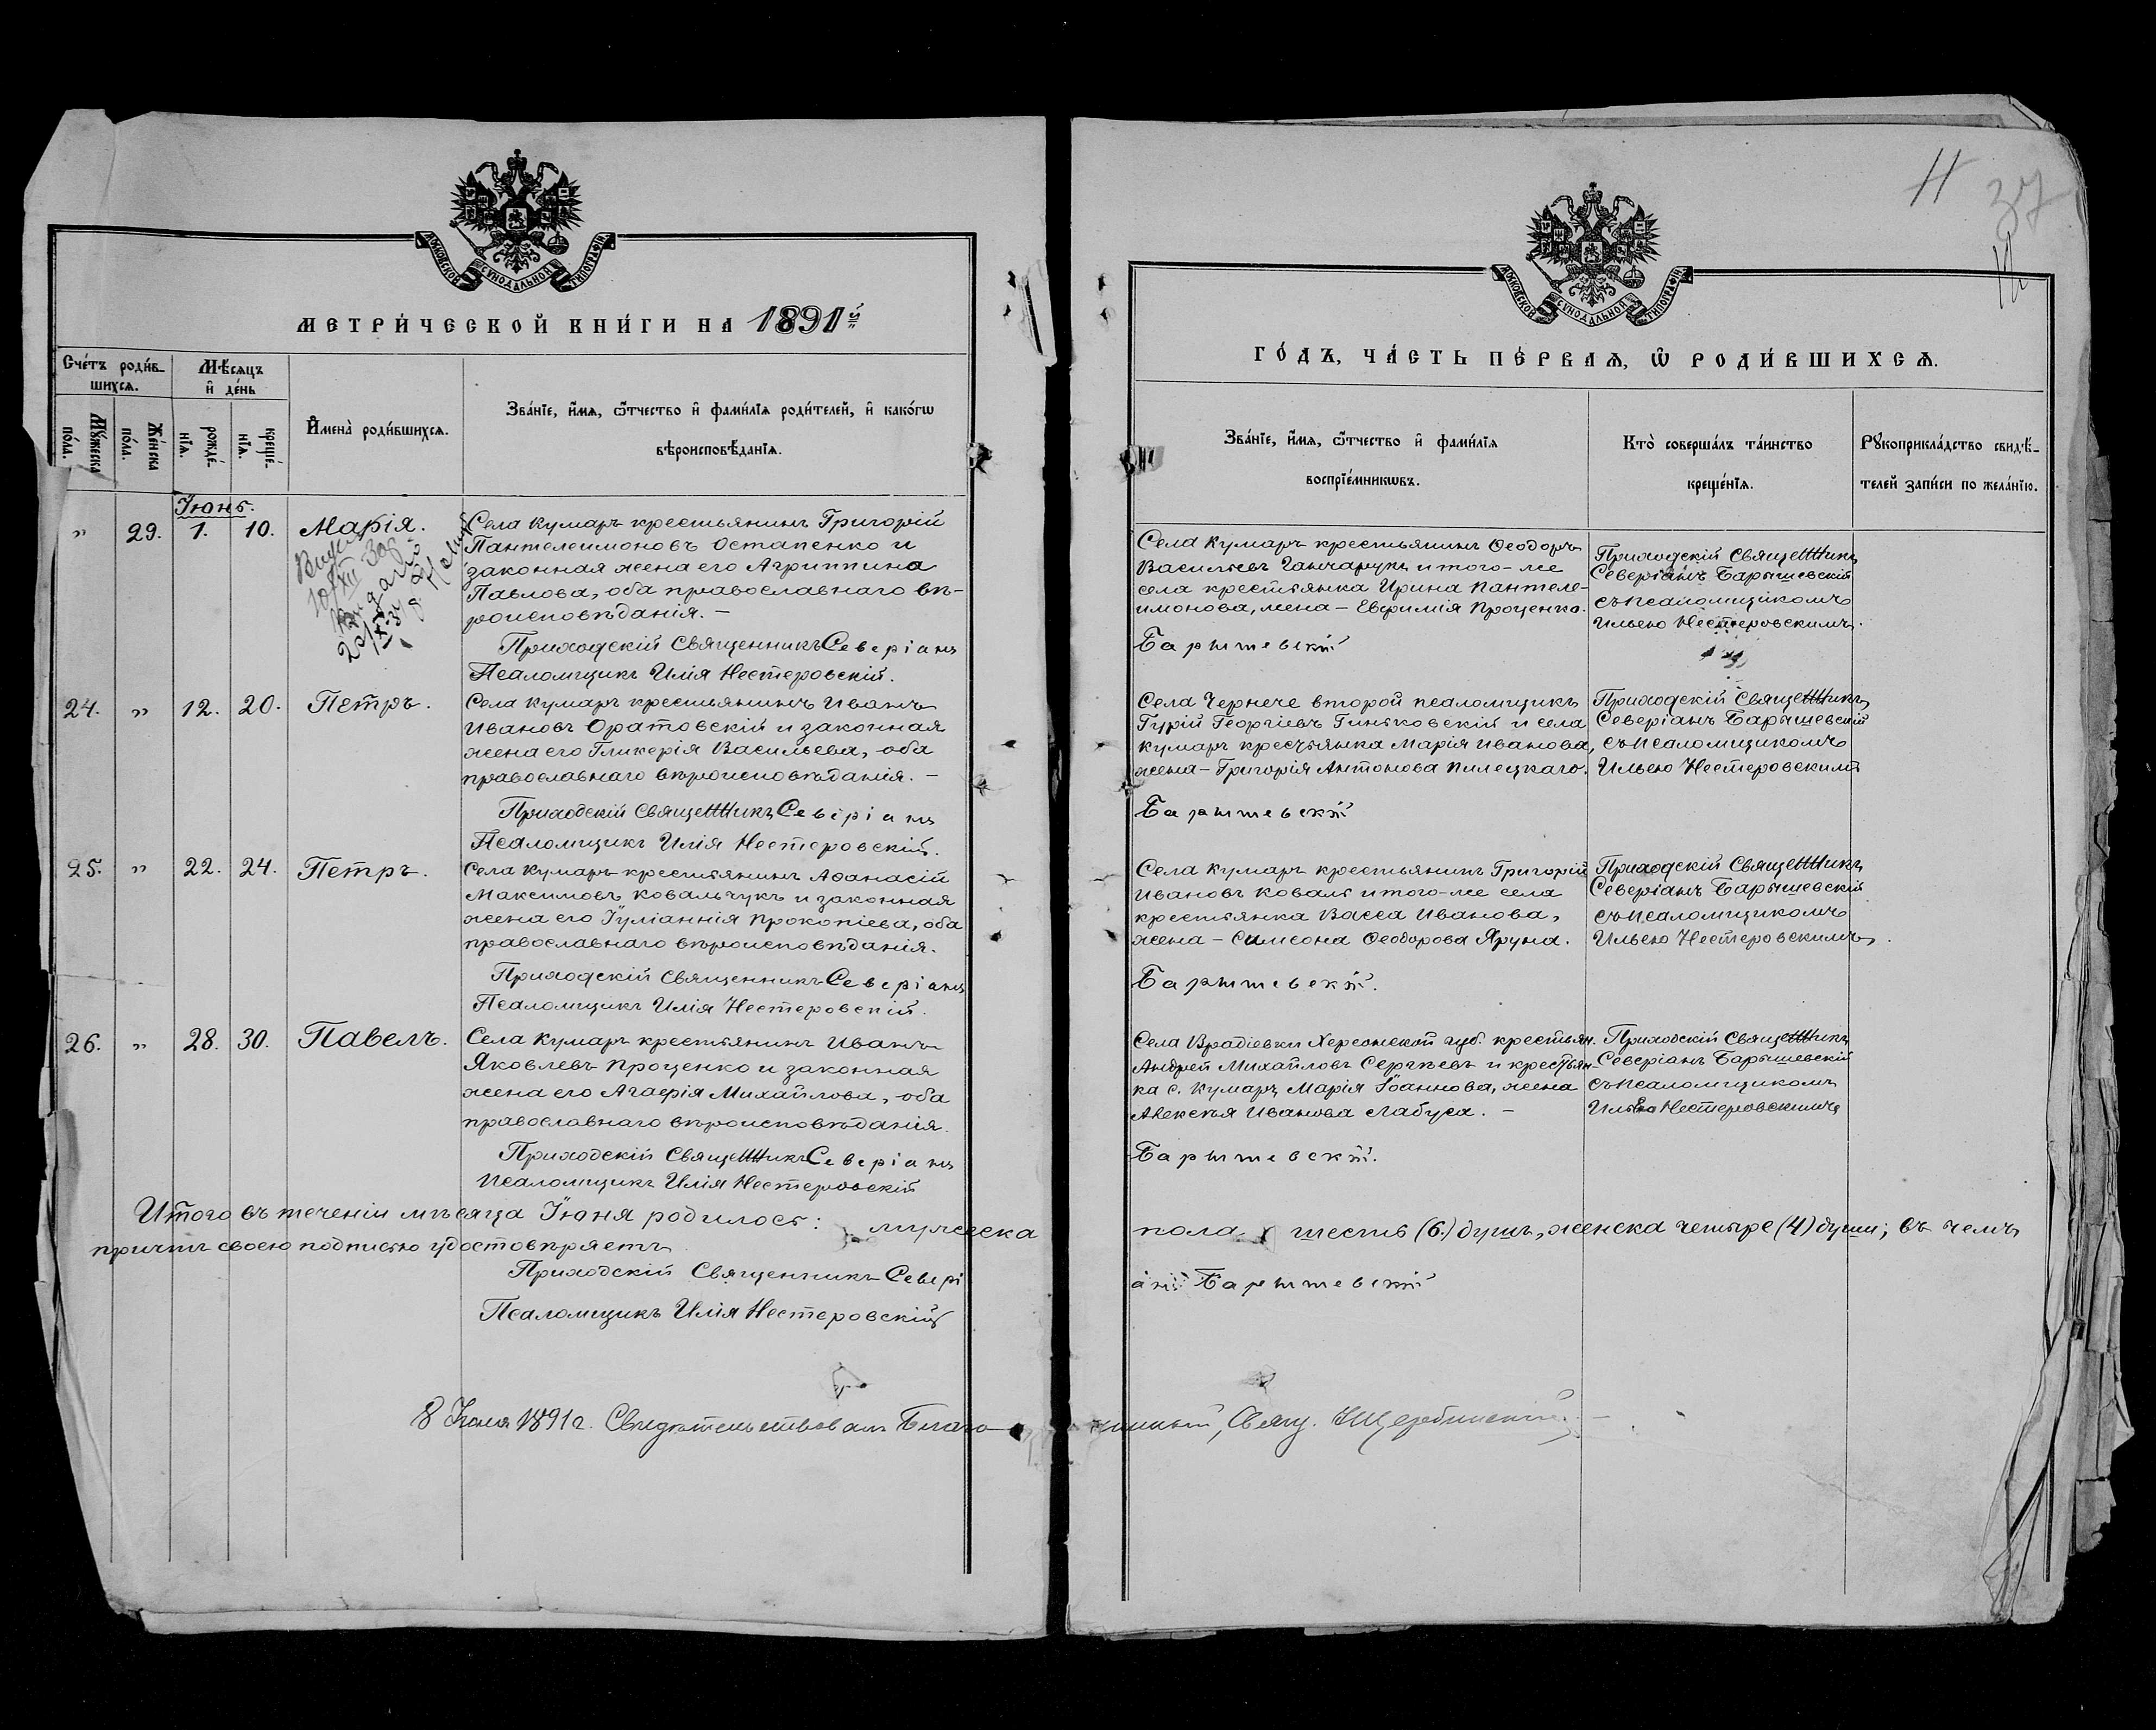 МОСКОВСКОЙ СѴНОДАЛЬНОЙ ТИПОГРАФІИ
МЕТРИ́ЧЕСКОЙ КНИ́ГИ НА 1891й
Сче́тъ роди́в-
шихсѧ.
Мѣ́сѧцъ
и҆ де́нь
Мꙋ́жеска
по́ла.
Же́нска
по́ла.
рожде́-
нїѧ.
креще́-
нїѧ.
И҆мена̀ роди́вшихсѧ.
Зва́нїе, и҆́мѧ, ѻ҆́тчество и҆ фами́лїѧ роди́телей, и҆ како́гѡ
вѣроисповѣ́данїѧ.
Іюнь.
„ 29. 1. 10. Марія.
Села Кумаръ крестьянинъ Григорій
Пантелеимоновъ Остапенко и
законная жена его Агриппина
Павлова, оба православнаго вѣ-
роисповѣданія. –
Приходскій Священникъ Северіанъ
Псаломщикъ Илія Нестеровскій.
24. „ 12. 20. Петръ.
Села Кумаръ крестьянинъ Иванъ
Ивановъ Оратовскій и законная
жена его Гликерія Васильева, – оба
православнаго вѣроисповѣданія. –
Приходскій Священникъ Северіанъ
Псаломщикъ Илія Нестеровскій.
25. „ 22. 24. Петръ.
Села Кумаръ крестьянинъ Аѳанасій
Максимовъ Ковальчукъ и законная
жена его Іуліаннія Прокопіева, оба
православнаго вѣроисповѣданія.
Приходскій Священникъ Северіанъ
Псаломщикъ Илія Нестеровскій.
26. „ 28. 30. Павелъ.
Села Кумаръ крестьянинъ Иванъ
Яковлевъ Проценко и законная
жена его Агафія Михайлова, – оба
православнаго вѣроисповѣданія.
Приходскій Священникъ Северіанъ
Псаломщикъ Илія Нестеровскій
Итого въ теченіи мѣсяца Іюня родилось: мужеска
причтъ своею подписью удостовѣряетъ
Приходскій Священникъ Севері
Псаломщикъ Илія Нестеровскій
8 Іюля 1891 г. Свидѣтельствовалъ Благо
11 37
МОСКОВСКОЙ СѴНОДАЛЬНОЙ ТИПОГРАФІИ
ГО́ДЪ, ЧА́СТЬ ПЕ́РВАѦ, Ѽ РОДИ́ВШИХСѦ.
Зва́нїе, и҆́мѧ, ѻ҆́тчество и҆ фами́лїѧ
воспрїе́мникѡвъ.
Кто̀ соверша́лъ та́инство
креще́нїѧ.
Рꙋкоприкла́дство свидѣ́-
телей за́писи по жела́нїю.
Села Кумаръ крестьянинъ Ѳеодоръ
Васильевъ Ганчарукъ и того-же
села крестьянка Ирина Пантеле-
имонова, жена – Евфимія Проценко.
Приходскій Священникъ
Северіанъ Барышевскій
съ псаломщикомъ
Ильею Нестеровскимъ.
Барышевскій
Села Чернече второй псаломщикъ
Гурій Георгіевъ Гиньковскій и села
Кумаръ крестьянка Марія Иванова,
жена – Григорія Антонова Пилецкаго.
Приходскій Священникъ
Северіанъ Барышевскій
съ псаломщикомъ
Ильею Нестеровскимъ
Барышевскій
Села Кумаръ крестьянинъ Григорій
Ивановъ Коваль и того-же села
крестьянка Васса Иванова,
жена – Симеона Ѳеодорова Яруна.
Приходскій Священникъ
Северіанъ Барышевскій
съ псаломщикомъ
Ильею Нестеровскимъ.
Барышевскій.
Села Врадіевки Херсонской губ. крестьян.
Андрей Михайловъ Сергѣевъ и крестьян-
ка с. Кумаръ Марія Іоаннова, жена
Алексѣя Иванова Лабуса. –
Приходскій Священникъ
Северіанъ Барышевскій
съ псаломщикомъ
Ильею Нестеровскимъ
Барышевскій.
пола шесть (6.) душъ, женска четыре (4) души; въ чемъ
анъ Барышевскій
чинный, Свящ. Щербинскій.